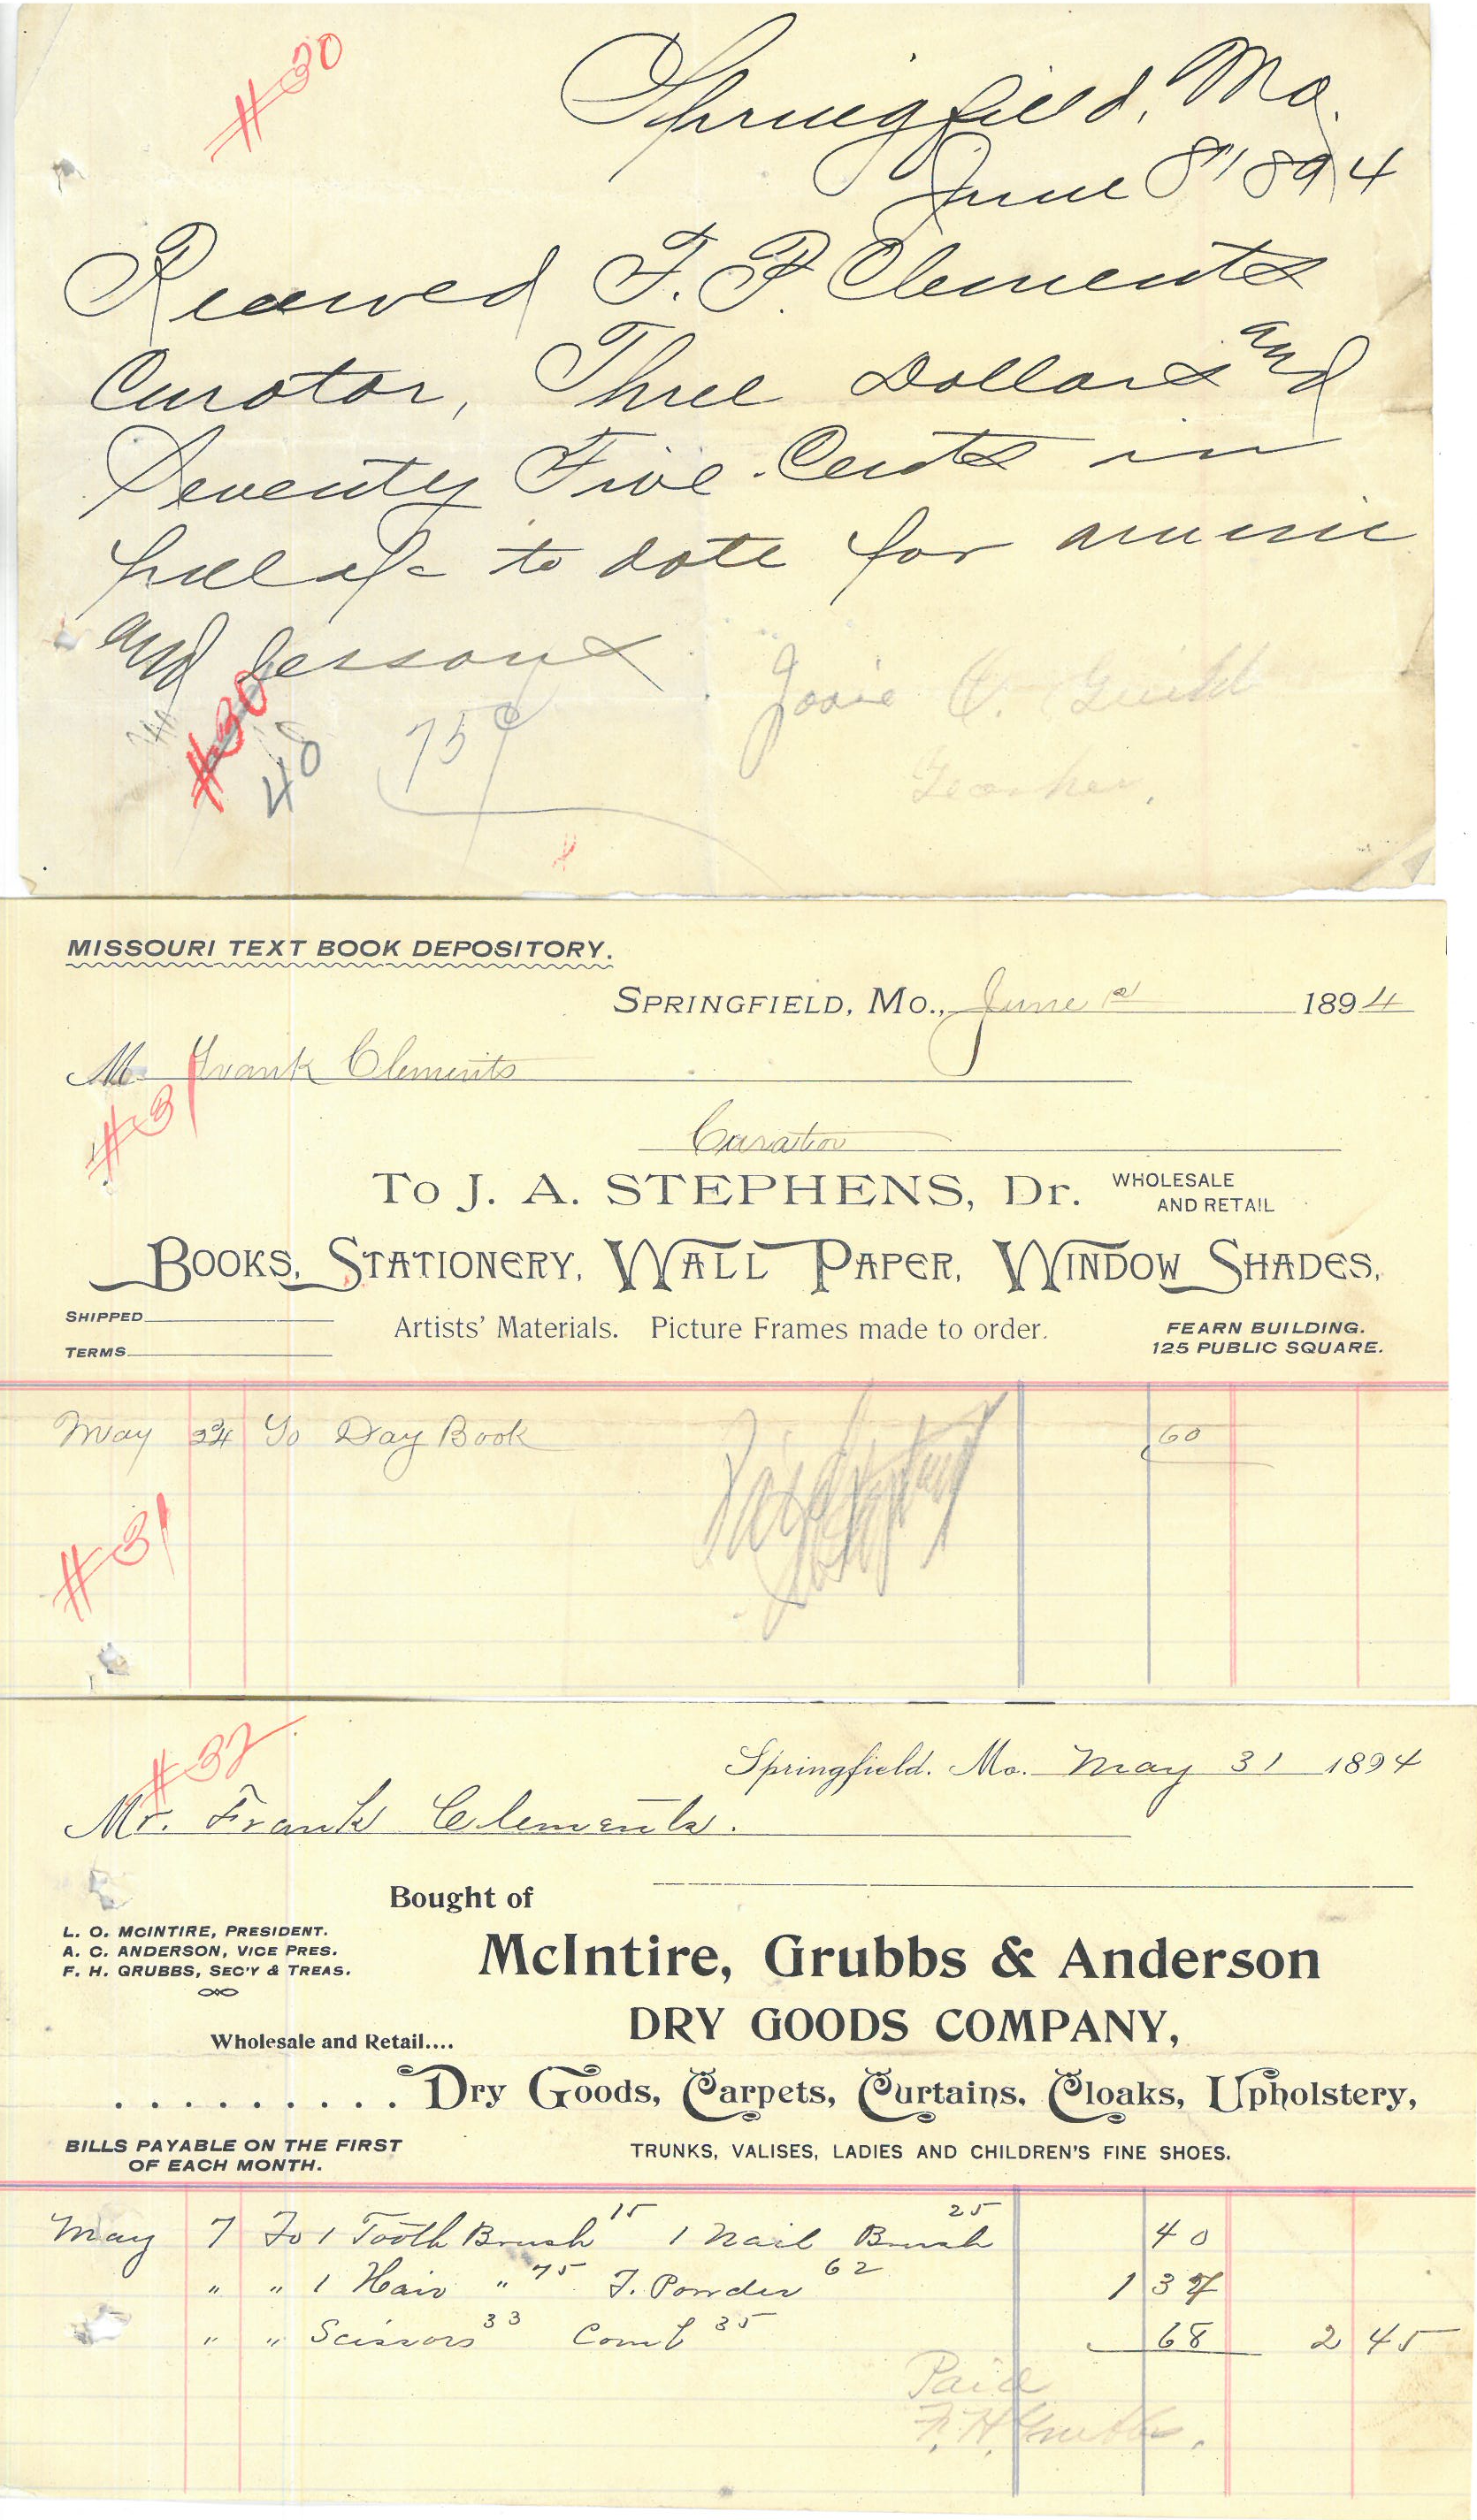 #30
Springfield, Mo.
June 8" 1894
Received F. P. Clements
Curator, Three Dollars and
Seventy Five Cents in
full a/c to date for music
and lessons
Josie C. Guild
Teacher,
#30
48
75¢
MISSOURI TEXT BOOK DEPOSITORY.
SPRINGFIELD, MO., June 1st 1894
M Frank Clements
#31
Curator
To J. A. STEPHENS, Dr. WHOLESALE AND RETAIL
BOOKS, STATIONERY, WALL PAPER, WINDOW SHADES,
SHIPPED
Artists' Materials. Picture Frames made to order.
FEARN BUILDING.
TERMS
125 PUBLIC SQUARE.
May 24 To Day Book 60
#31
#32
Springfield. Mo. May 31 1894
Mr. Frank Clements.
Bought of
L. O. MCINTIRE, PRESIDENT.
A. C. ANDERSON, VICE PRES.
F. H. GRUBBS, SEC'Y & TREAS.
McIntire, Grubbs & Anderson
DRY GOODS COMPANY,
Wholesale and Retail....
.......... Dry Goods, Carpets, Curtains, Cloaks, Upholstery,
BILLS PAYABLE ON THE FIRST
OF EACH MONTH.
TRUNKS, VALISES, LADIES AND CHILDREN'S FINE SHOES.
May 7 To 1 Tooth Brush 15 1 Nail Brush 25 40
" " 1 Hair " 75 T. Powder 62 1 37
" " Scissors 33 Comb 35 68 2 45
Paid
F. H. Grubbs.